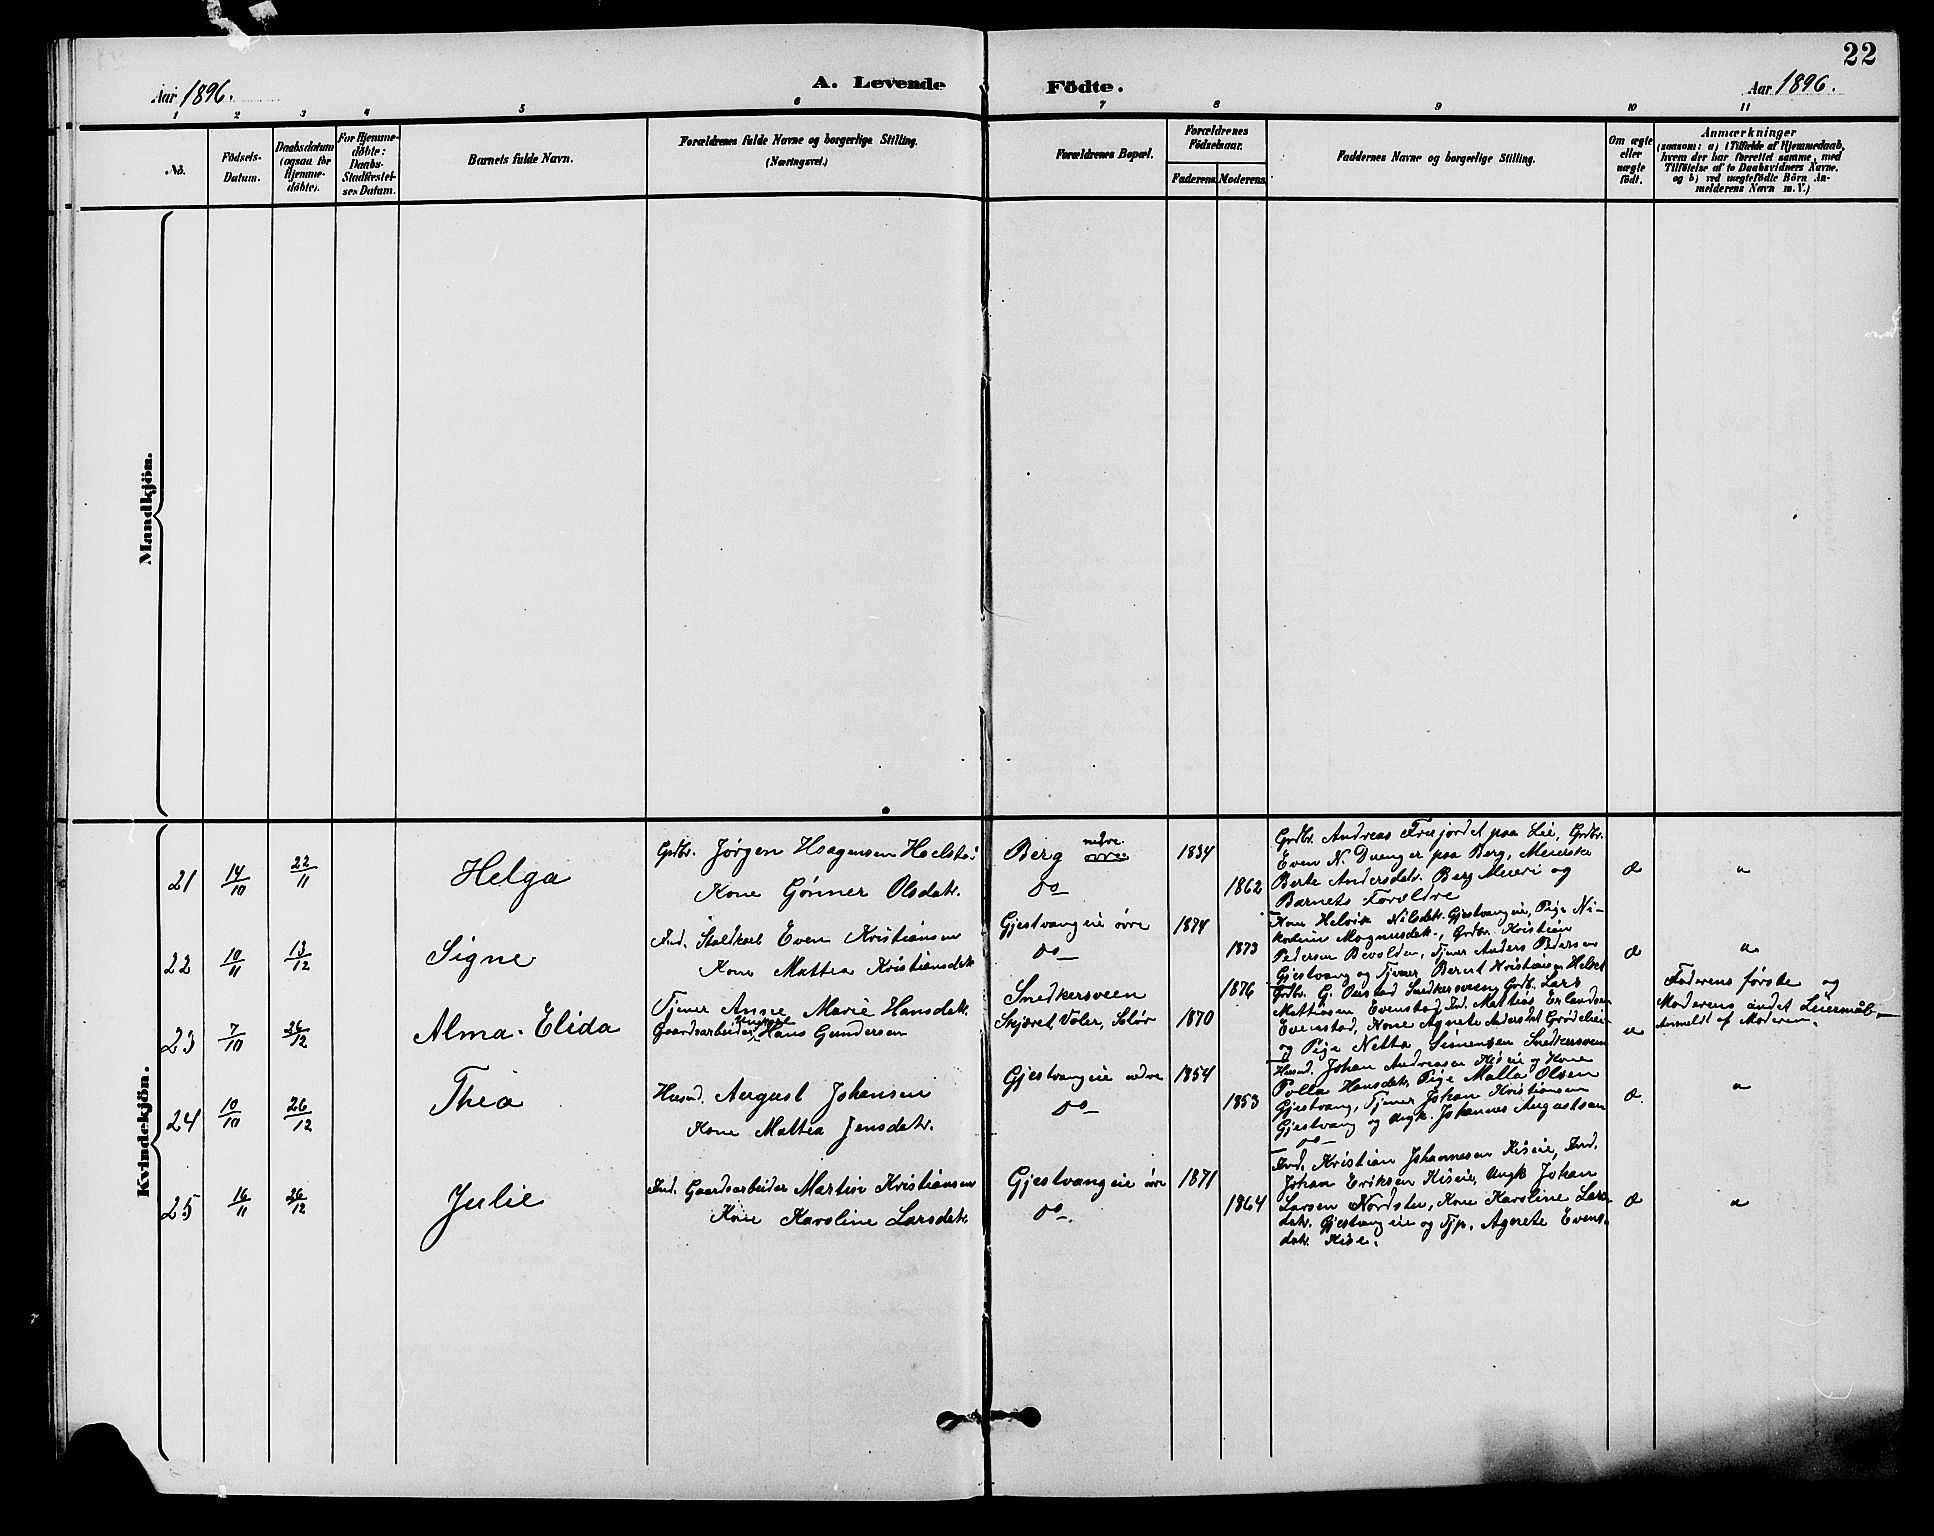 22
Aar 1896.
A. Levende Födte.
Aar 1896.
1 2 3 4 5 6 7 8 9 10 11
No.
Födsels-
Datum.
Daabsdatum
(ogsaa for
Hjemme-
döbte).
For Hjemme-
döbte:
Daabs-
Stadfæstel-
ses Datum.
Barnets fulde Navn.
Forældrenes fulde Navne og borgerlige Stilling.
(Næringsvei.)
Forældrenes Bopæl.
Forældrenes
Födselsaar.
Faderens Moderens
Faddernes Navne og borgerlige Stilling.
Om ægte
eller
uægte
födt.
Anmærkninger
(saasom: a) i Tilfælde af Hjemmedaab,
hvem der har forrettet samme, med
Tilföielse af to Daabsvidners Navne,
og b) ved uægtefödte Börn An-
melderens Navn m. V.)
Mandkjön.
Kvindekjön.
21
14/10
22/11
Helga
Grdbr. Jørgen Haagensen
Kone Gønner Olsdatr.
Berg nedre
do
1834
1862
Grdbr. Andreas paa Lie, Grdbr.
Even N. Dvenger paa Berg, Meierske
Berte Andersdatr. Berg Meieri og
Barnets Forældre
Æ
"
22
10/11
13/12
Signe
Ind. Staldkarl Even Kristiansen
Kone Mattea Kristiansdatr
Gjestvangeie øvre
do
1874
1873
Kone Helvik Nilsdatr. Gjestvangeie, Pige Ni-
Magnusdatr., Grdbr. Kristian
Pedersen Bevolden, Tjener Anders Pedersen
Gjestvang og Tjener Bernt Kristiansen Helset
Æ
"
23
7/10
26/12
Alma Elida
Tjener Anne Marie Hansdatr.
Gaardsarbeider Ungkarl Hans Gundersen
Snedkersveen
Skjæret, Våler, Solør
1876
1870
Grdbr. G. Snedkersveen, Grdb. Lars
Mattiasen Evenstad, Ind. Mattias Erlandsen
Evenstad, Kone Agnete Andersdat
og Pige Netta Simensen Snedkersveen
u
Faderens første og
Moderens andet Leiermål.
Anmeldt af Moderen.
24
10/10
26/12
Thea
Husmd. August Johansen
Kone Mattea Jensdatr.
Gjestvangeie nedre
do
1854
1853
Husmd. Johan Andreasen Kiseie og Kone
Polla Hansdatr. Pige Malla Olsen
Gjestvang, Tjener Johan Kristiansen
Gjestvang og Ungk. Johannes Augustsen
do
Æ.
"
25
16/11
26/12
Julie
Ind. Gaardsarbeider Martin Kristiansen
Kone Karoline Larsdatr
Gjestvangeie øvre
do.
1871
1864
Ind. Kristian Johannesen Kiseie, Ind.
Johan Eriksen Kiseie, Ungk Johan
Larsen Nordsten, Kone Karoline Lars-
datr. Gjestvangeie og Tjp. Agnete Evens-
datr. Kise.
Æ
"